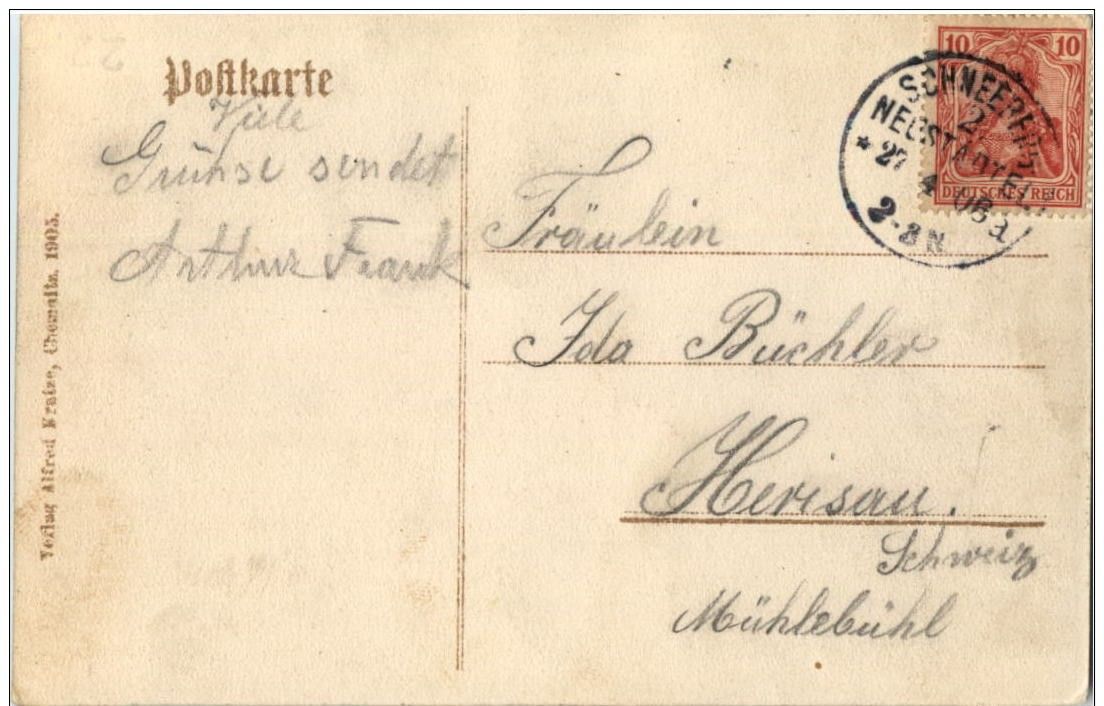 Postkarte
Viele
Grünse sendet
Arthur Frank
Verlag Alfred Kratze, Chemnitz. 1905.
10 10
DEUTSCHES REICH
SCHNEEBERG
NEUSTÄDTEL
* 27 4 06 a
2-3 N
Fräulein
Ida Büchler
Herisau.
Schweiz
Mühlebühl